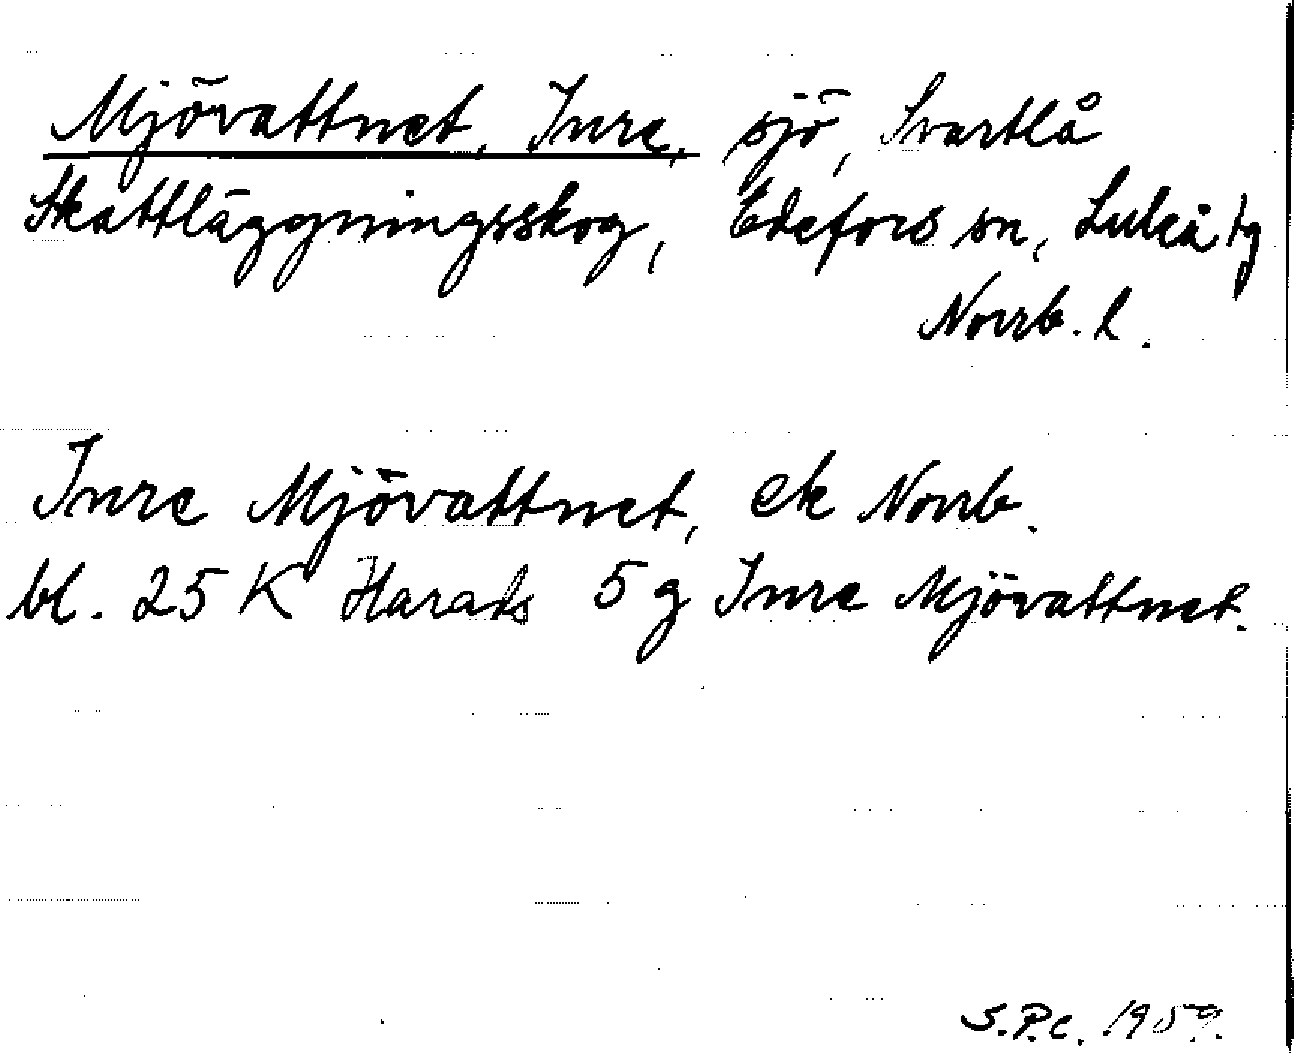 Mjövattnet, Inre, sjö, Svartlå
Skattläggningsskog, Edefors sn, Luleå tg
Norrb. l.
Inre Mjövattnet, ek Norrb.
bl. 25 K Harads 5 g Inre Mjövattnet.
S.P.c. 1959.